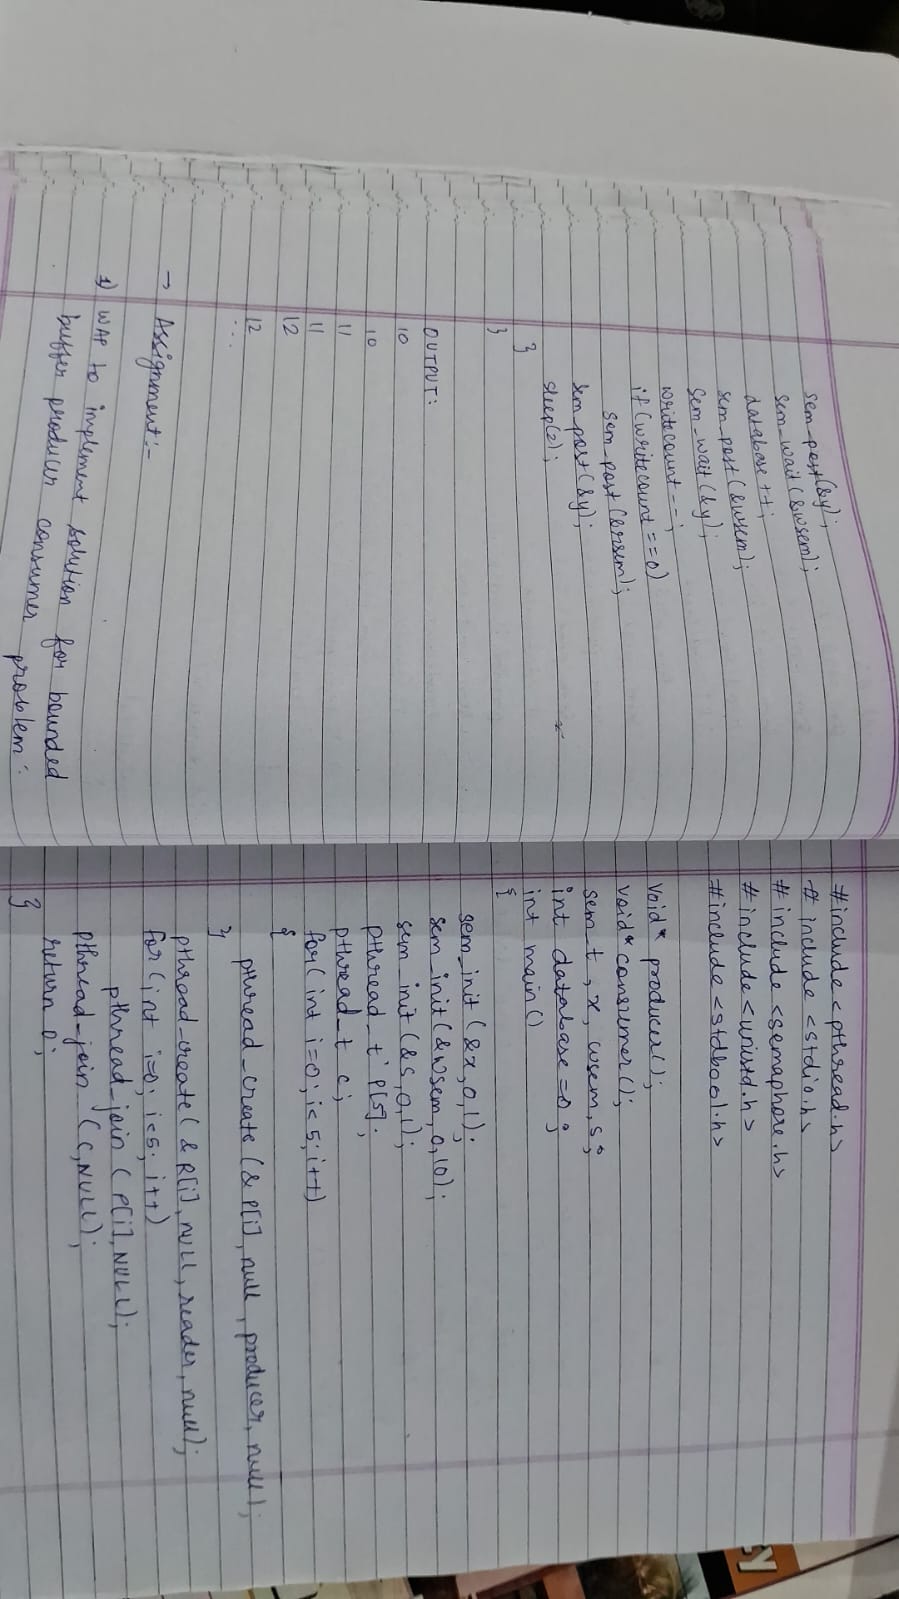 sem_post(&y);
sem_wait(&wsem);
database++;
sem_post(&wsem);
sem_wait(&y);
writecount--;
if(writecount==0)
sem_post(&rsem);
sem_post(&y);
sleep(2);
}
}
OUTPUT:
10
10
11
11
12
12
...
→ Assignment:-
1) WAP to implement solution for bounded
buffer producer consumer problem:
#include<pthread.h>
# include <stdio.h>
# include <semaphore.h>
# include <unistd.h>
#include <stdbool.h>
void* producer();
void* consumer();
sem_t , x, wsem, s;
int database =0;
int main()
{
sem_init (&x,0,1);
sem_init(&wsem, 0,10);
sem_init (&s,0,1);
pthread_t P[5];
pthread_t c;
for( int i=0; i<5; i++)
{
pthread_create (& P[i], null , producer, null);
}
pthread_create( & R[i], NULL, reader, null);
for (int i=0; i<5; i++)
pthread_join ( P[i], NULL);
pthread_join (C,NULL);
return 0;
}